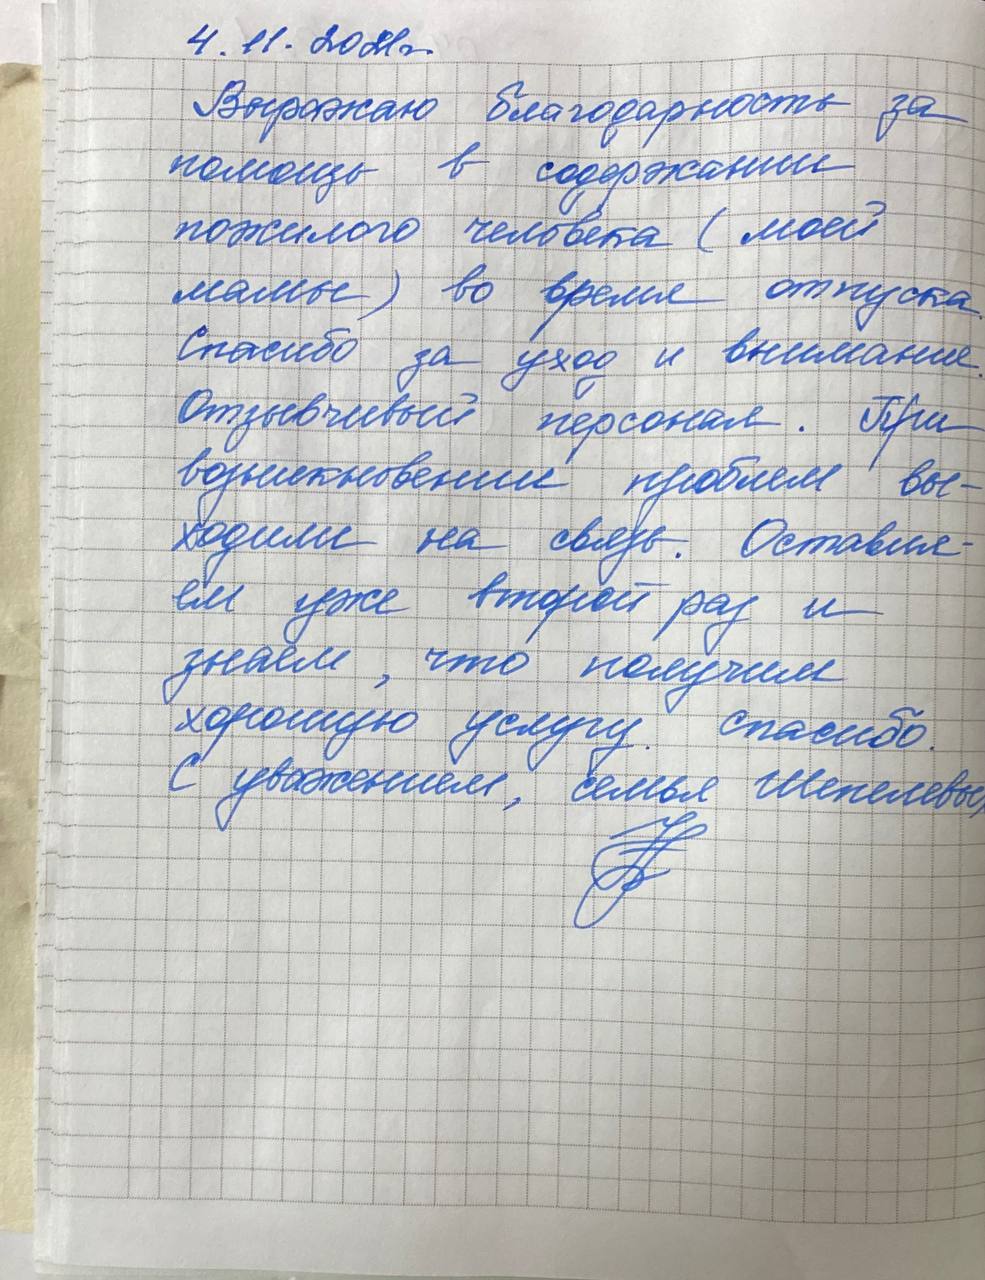 4.11.2021г.
Выражаю благодарность за
помощь в содержании
пожилого человека (моей
мамы) во время отпуска.
Спасибо за уход и внимание.
Отзывчивый персонал. При
возникновении проблем вы-
ходили на связь. Оставля-
ем уже второй раз и
знаем, что получим
хорошую услугу. Спасибо.
С уважением, семья Шепелевых